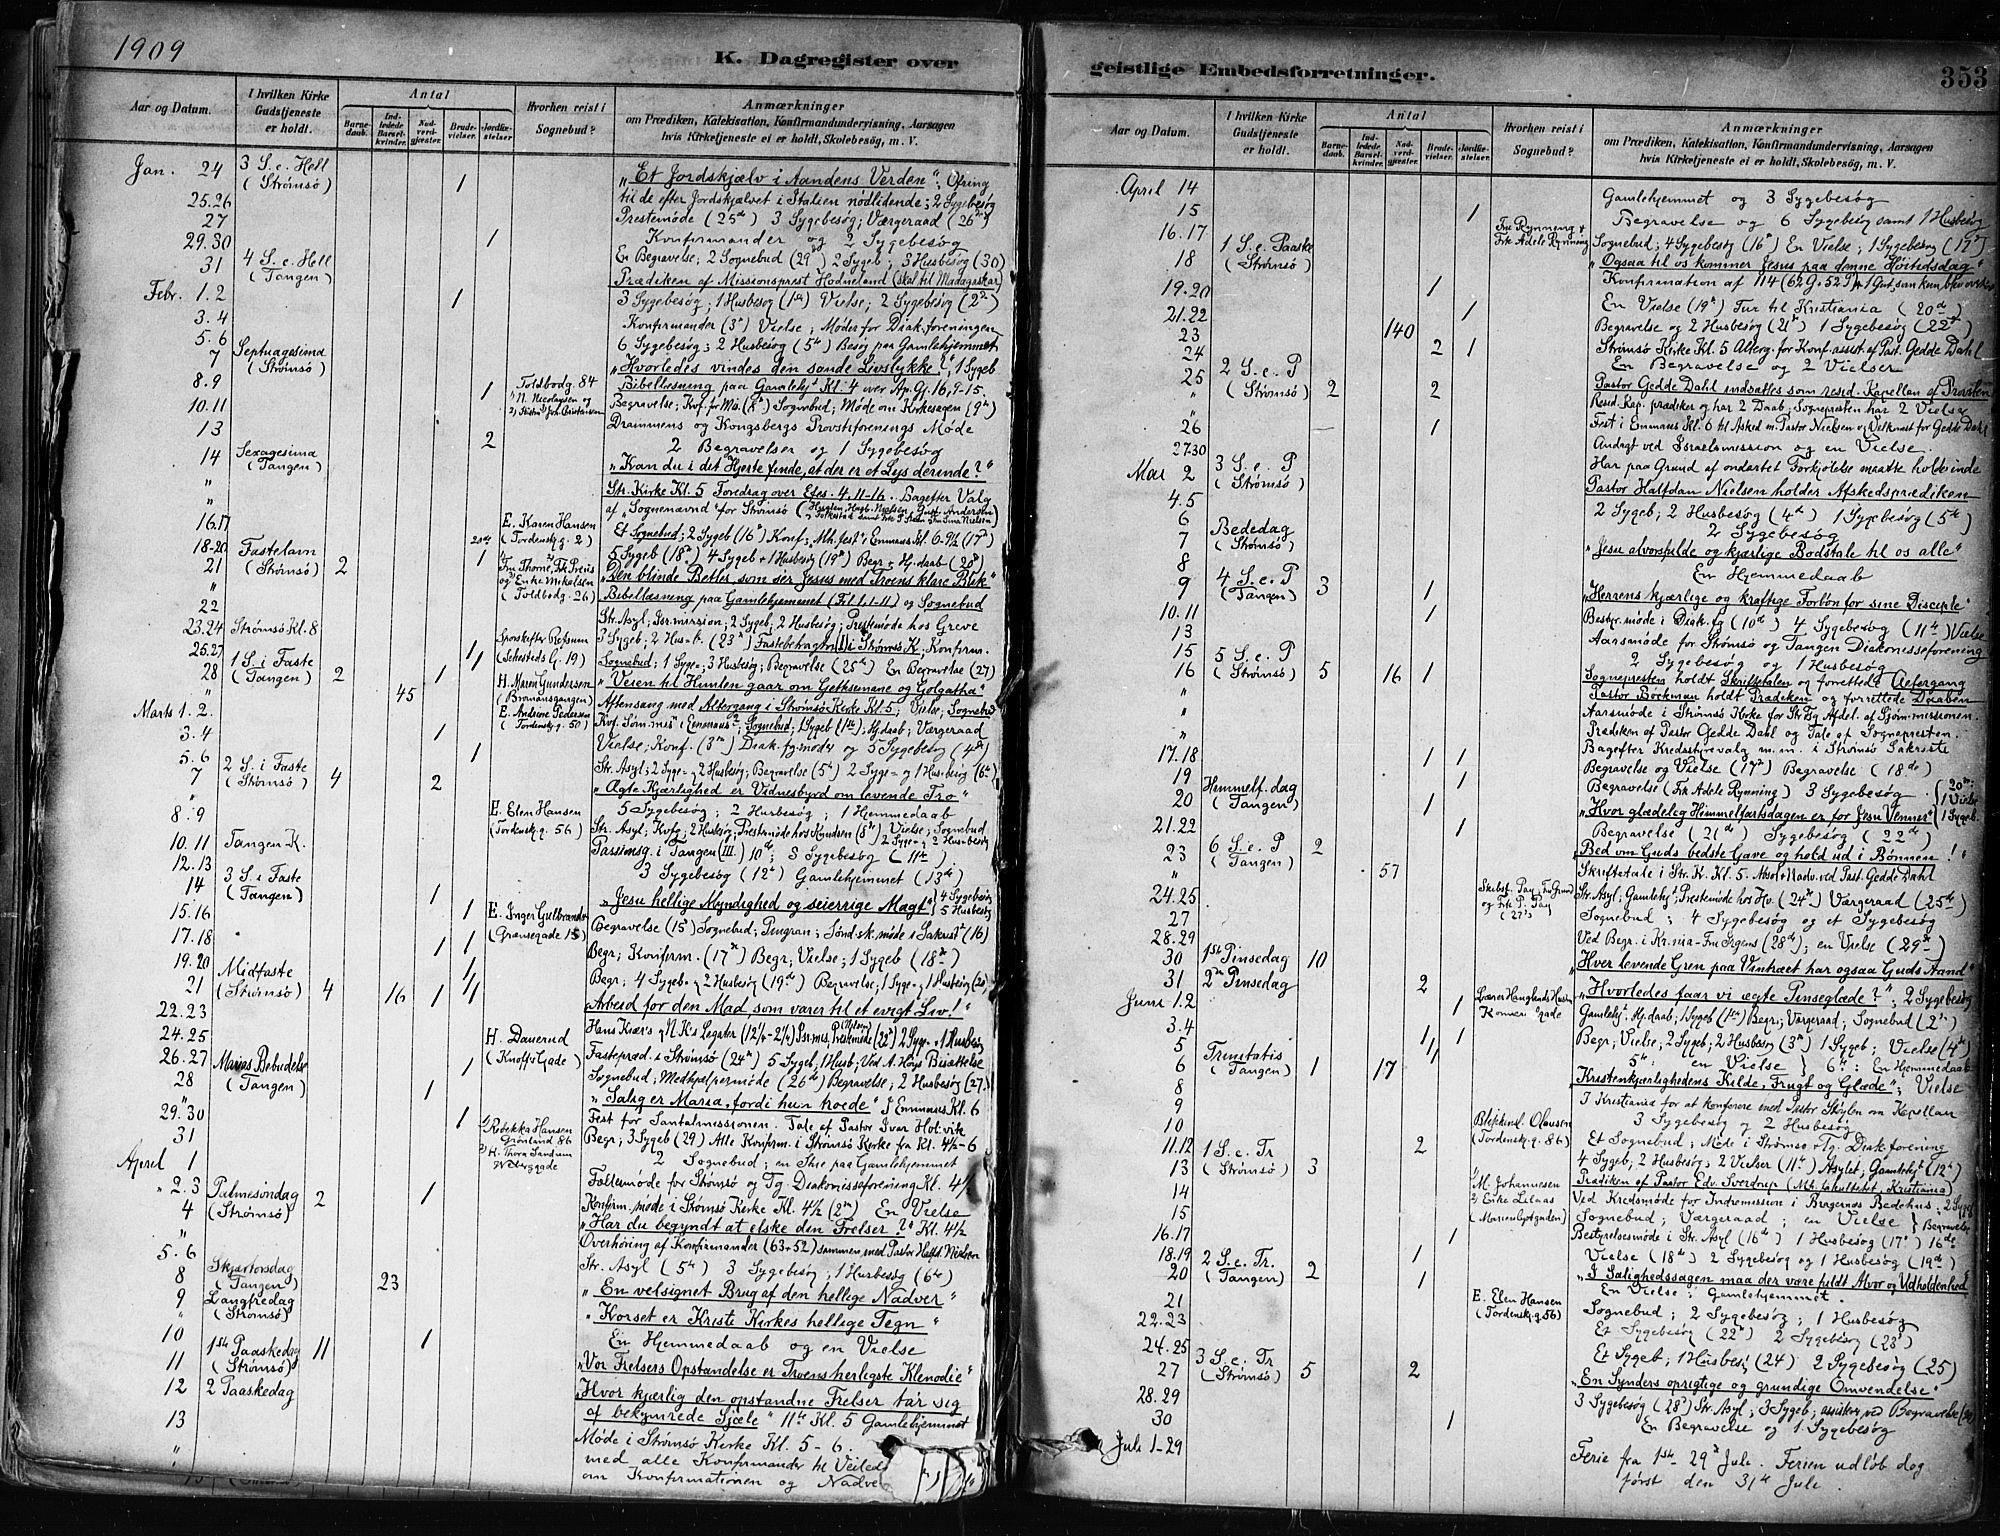 1909
K. Dagregister over
Aar og Datum.
I hvilken Kirke Gudstjeneste er holdt.
Antal
Barne-daab.
Ind-ledede Barsel-kvinder.
Nad-verd-gjæster.
Brude-vielser.
Jordfæ-stelser
Hvorhen reist i Sognebud?
Anmærkninger
om Prædiken, Katekisation, Konfirmandundervisning, Aarsagen
hvis Kirketjeneste ei er holdt, Skolebesøg, m. V.
Jan. 24 3 S. e. Hell (Strømsø) 1 „Et Jordskjælv i Aandens Verden“, Ofring
25.26 til de efter Jordskjælvet i Italien nødlidende; 2 Sygebesøg
27 Prestemøde (25de) 3 Sygebesøg; Værgeraad (26de)
29.30 1 Konfirmander og 2 Sygebesøg
31 4 S. e. Hell (Tangen) En Begravelse; 2 Sognebud (29de) 2 Sygeb; 3 Husbesøg (30)
Prædiken af Missionsprest Hodneland (skal til Madagaskar)
Febr. 1.2 1 3 Sygebesøg; 1 Husbesøg (1ste) Vielse; 2 Sygebesøg (2den)
3.4 Konfirmander (3die) Vielse; Møder for Diak.foreningen
5.6 6 Sygebesøg; 2 Husbesøg (5te) Besøg paa Gamlehjemmet
7 Septuagesima (Strømsø) „Hvorledes vindes den sande Livslykke?“, 1 Sygeb
8.9 1 Toldbodg. 84 Bibellæsning paa Gamlehjt Kl. 4 over Ap. Gj. 16, 9-15.
10.11 N. Nicolaysen og Begravelse; Kof. for Mø. (8de) Sognebud; Møde om Kirkesagen (9de)
13 Drammens og Kongsbergs Provstiforenings Møde
2 2 Begravelser og 1 Sygebesøg
14 Sexagesima (Tangen) „Kan du i dit Hjerte finde, at der er et Lys derinde?“
„ Str. Kirke Kl. 5 Foredrag over Efes. 4, 11-16. Bagefter Valg
„ af „Sognenævnd“ for Strømsø
16.17 E. Karen Hansen (Tordensk.g. 2) Et Sognebud; 2 Sygeb (16de) Konf; „Mh.fest“ i Emmaus Kl. 6-9½ (17de)
18-20 Fastelavn 1 5 Sygeb (18de) 4 Sygeb + 1 Husbesøg (19de) Begr + Hj.daab (20de)
21 (Strømsø) 2 og Enke Mikelsen (Toldbodg. 26) „Den blinde Betler, som ser Jesus med Troens klare Blik“
„ Bibellæsning paa Gamlehjemmet (Fil 1, 1-11) og Sognebud
22 Str. Asyl; Isr.mission; 2 Sygeb, 2 Husbesøg; Prestemøde hos Greve
23.24 Strømsø Kl. 8 3 Sygeb; 2 Husb. (23de) Fastebetragtn (I) i Strømsø K; Konfirm.
25.27 (Schesteds G. 19) Sognebud; 1 Syge-, 3 Husbesøg; Begravelse (25de) En Begravelse (27)
28 1 S. i Faste (Tangen) 2 1 H. Maren Gundersen „Veien til Himlen gaar om Getksemane og Golgatha“
„ 45 Aftensang med Altergang i Strømsø Kirke Kl. 5; Vielse; Sognebud
Marts 1.2. E. Andrine Pedersen (Tordensk.g. 50) Kof. Søm.mis i Emmaus; Sognebud; 1 Sygeb (1ste); Hj.daab; Værgeraad
3.4 1 Vielse; Konf. (3die) Diak.fg.møde og 5 Sygebesøg (4de)
5.6 1 Str. Asyl; 2 Syge- og 2 Husbesøg; Begravelse (5te) 2 Syge- og 1 Husbesøg (6te)
7 2 S. i Faste (Strømsø) 4 2 „Ægte Kjærlighed er Vidnesbyrd om levende Tro“
„ 5 Sygebesøg; 2 Husbesøg; 1 Hjemmedaab
8.9 E. Elen Hansen (Tordensk.g. 56) Str. Asyl, Kofg, 2 Husbesøg; Prestemøde hos Knudsen (8de) Vielse; Sognebud
10.11 Tangen K. Passionsg. i Tangen (III.) 10de; 8 Sygebesøg (11te)
12.13 3 Sygebesøg (12te) Gamlehjemmet (13de)
14 3 S. i Faste (Tangen) 1 „Jesu hellige Myndighed og seierrige Magt“ 4 Sygebesøg 5 Husbesøg
15.16 1 E. Inger Gulbrands (Grønsegade 15) Begravelse (15de) Sognebud; Søndsk.møde i Sakrist (16)
17.18 1 1 Begr; Konfirm. (17de) Begr; Vielse; 1 Sygeb (18de)
19.20 Begr; 4 Sygeb- og 2 Husbesøg (19de) Begravelse; 1 Syge- og 1 Husbesøg (20)
21 Midfaste (Strømsø) 4 16 1 „Arbeid for den Mad, som varer til et evigt Liv!“
22.23 Hans Kiær's og N. K's Legater
24.25 H. Dauerud (Knoffs Gade) Fasteprd. i Strømsø (24de) 5 Sygeb, 1 Husb; Ved A. Høys Bisættelse
26.27 1 Sognebud; Medhjælpermøde (26de) Begravelse; 2 Husbesøg (27.)
28 Marias Bebudelse (Tangen) 1 „Salig er Maria, fordi hun troede“ I Emmaus Kl. 6
29.30 1 Rebekka Hansen Fest for Santalmissionen. Tale af Pastor Ivar Hotvik
31 Grønland 86 Begr; 3 Sygeb (29) Alle Konfirm. i Strømsø Kirke fra Kl. 4½-6
April 1 2 Sognebud; en Skie paa Gamlehjemmet
„ 2.3 1 Fællesmøde for Strømsø og Tg. Diakonisseforening Kl. 4½
4 Palmesøndag (Strømsø) 2 Konfirm.møde i Strømsø Kirke Kl. 4½ (2den) En Vielse
„ „Har du begyndt at elske den Frelser?“ Kl. 4½
5.6 Overhøring af Konfirmander (63+52) sammen med Pastor Halfd. Nielsen
Str. Asyl (5te) 3 Sygebesøg; 1 Husbesøg (6te)
8 Skjærtorsdag (Tangen) 23 „En velsignet Brug af den hellige Nadver“
9 Langfredag (Strømsø) „Korset er Kristi Kirkes hellige Tegn“
10 1 En Hjemmedaab og en Vielse
11 1ste Paaskedag (Strømsø) 11 „Vor Frelsers Opstandelse er Troens herligste Klenodie“
12 2 Paaskedag „Hvor kjærlig den opstandne Frelser tar sig
af bekymrede Sjæle“ 11te Kl. 5 Gamlehjemmet
13 Møde i Strømsø Kirke Kl. 5-6.
„ med alle Konfirmander til Veiled
om Konfirmationen og Nadve
geistlige Embedsforretninger.
353
Aar og Datum.
I hvilken Kirke Gudstjeneste er holdt.
Antal
Barne-daab.
Ind-ledede Barsel-kvinder.
Nad-verd-gjæster.
Brude-vielser.
Jordfæ-stelser.
Hvorhen reist i Sognebud?
Anmærkninger
om Prædiken, Katekisation, Konfirmandundervisning, Aarsagen
hvis Kirketjeneste ei er holdt, Skolebesøg, m. V.
April 14 Gamlehjemmet og 3 Sygebesøg
15 1 Begravelse og 6 Sygebesøg samt 1 Husbesøg
16.17 Fru Rynning + Frk Adele Rynning Sognebud; 4 Sygebesøg (16de) En Vielse; 1 Sygebesøg (17de)
18 1 S. e. Paaske (Strømsø) „Ogsaa til os kommer Jesus paa denne Høitidsdag“
Konfirmation af 114 (62 G. 52 P)
19.20 1 En Vielse (19de) Tur til Kristiania (20de)
21.22 1 Begravelse og 2 Husbesøg (21de) 1 Sygebesøg (22de)
23 140 Strømsø Kirke Kl. 5 Alterg. for Konf. assist. af Past. Gedde Dahl
24 2 1 En Begravelse og 2 Vielser
25 2 S. e. P (Strømsø) 2 2 Pastor Gedde Dahl indsattes som resid. Kapellan af Provsten
„ Resid. Kap. prædiker og har 2 Daab; Sognepresten har 2 Vielse
„ Fest i Emmaus Kl. 6 til Afsked m. Pastor Nielsen og Velkomst for Gedde Dahl
26 — 1 Andagt ved Israelsmission og en Vielse.
27.30 Har paa Grund af ondartet Forkjølelse maatte holde inde
Mai 2 3 S. e. P (Strømsø) Pastor Halfdan Nielsen holder Afskedsprædiken
4.5 2 Sygeb; 2 Husbesøg (4de) 1 Sygebesøg (5te)
6 2 Sygebesøg
7 Bededag (Strømsø) „Jesu alvorsfulde og kjærlige Bodstale til os alle“
8 En Hjemmedaab
9 4 S. e. P (Tangen) 3 1 „Herrens kjærlige og kraftige Forbøn for sine Disciple“
10.11 1 Bestyr.møde i Diak.fg (10de) 4 Sygebesøg (11te) Vielse
13 Aarsmøde for Strømsø og Tangen Diakonisseforening
15 2 Sygebesøg og 1 Husbesøg
16 5 S. e. P (Strømsø) 5 16 1 Sognepresten holdt Skriftetalen og forrettede Altergang
„ Pastor Bøckman holdt Prædiken og forrettede Daaben
„ Aarsmøde i Strømsø Kirke for Str. Tg Afdel. af Sjøm.missionen.
„ Prædiken af Pastor Gedde Dahl og Tale af Sognepresten.
„ Bagefter Kredsstyrevalg m.m. i Strømsø Sakristi
17.18 1 1 Begravelse og Vielse (17de) Begravelse (18de)
19 1 Begravelse (Frk Adele Rynning) 3 Sygebesøg
20 Himmelf.dag (Tangen) 1 „Hvor glædelig Himmelfartsdagen er for Jesu Venner“ 20de: 1 Vielse 1 Sygeb.
21.22 1 Begravelse (21de) Sygebesøg (22de)
23 6 S. e. P (Tangen) 2 „Bed om Guds bedste Gave og hold ud i Bønnen!“
„ 57 Skriftetale i Str. K. Kl. 5. Absol + Nadv. ved Past. Gedde Dahl
24.25 Str. Asyl; Gamlehjt, Prestemøde hos Hv. (24de) Værgeraad (25de)
27 Sognebud; 4 Sygebesøg og et Sygebesøg
28.29 Ved Begr. i Kr.nia (28de); en Vielse (29de)
30 1ste Pinsedag 10 „Hver levende Gren paa Vintræet har ogsaa Guds Aand“
31 2den Pinsedag 2 „Hvorledes faar vi ægte Pinseglæde?“; 2 Sygebesøg
Juni 1.2 1 Gamlehjt, Hj.daab; 1 Sygeb (1ste) Begr; Værgeraad; Sognebud (2den)
3.4 Begr; Vielse; 2 Sygeb; 2 Husbesøg (3die) 1 Sygeb; Vielse (4de)
5 5te: en Vielse 6te: En Hjemmedaab
6 Trinitatis (Tangen) 1 17 „Kristenkjærlighedens Kilde, Frugt og Glæde“; Vielse
8 I Kristiania for at konferere med Pastor Skylen om Kapellan
9 3 Sygebesøg og 2 Husbesøg
10 Olausen (Tordensk.g. 86) Et Sognebud; Møde i Strømsø + Tg. Diak.forening
11.12 2 4 Sygeb; 2 Husbesøg; 2 Vielser (11te) Asylet; Gamlehjt (12te)
13 1 S. e. Tr (Strømsø) 3 M. Johannesen Prædiken af Pastor Edv. Sverdrup (Mh.fakultetet, Kristiania)
14 Ved Kredsmøde for Indremission i Bragernes Bedehus; 2 Sygeb
15 Sognebud; Værgeraad; en Vielse Begravelse
16.17 1 Bestyrelsesmøde i Str. Asyl (16de) 1 Husbesøg (17de) 16de
18.19 1 Vielse (18de) 2 Sygebesøg og 1 Husbesøg (19de)
20 2 S. e. Tr. (Tangen) 2 1 „I Salighedssagen maa der være fuldt Alvor og Udholdenhed“
21 E. Elen Hansen (Tordensk.g. 56) En Vielse; Gamlehjemmet.
22.23 Sognebud; 2 Sygebesøg; 1 Husbesøg
Et Sygebesøg (22de) 2 Sygebesøg (23de)
24.25 Et Sygeb; 1 Husbesøg (24) 2 Sygebesøg (25)
27 3 S. e. Tr (Strømsø) 5 2 „En Synders oprigtige og grundige Omvendelse“
28.29 3 Sygebesøg (28de) Str. Asyl; 3 Sygeb; assisterer ved Begravelse
30 1 En Begravelse og 1 Sygebesøg
Juli 1-29 Ferie fra 1ste - 29de Juli. Ferien udløb dog
først den 31te Juli.